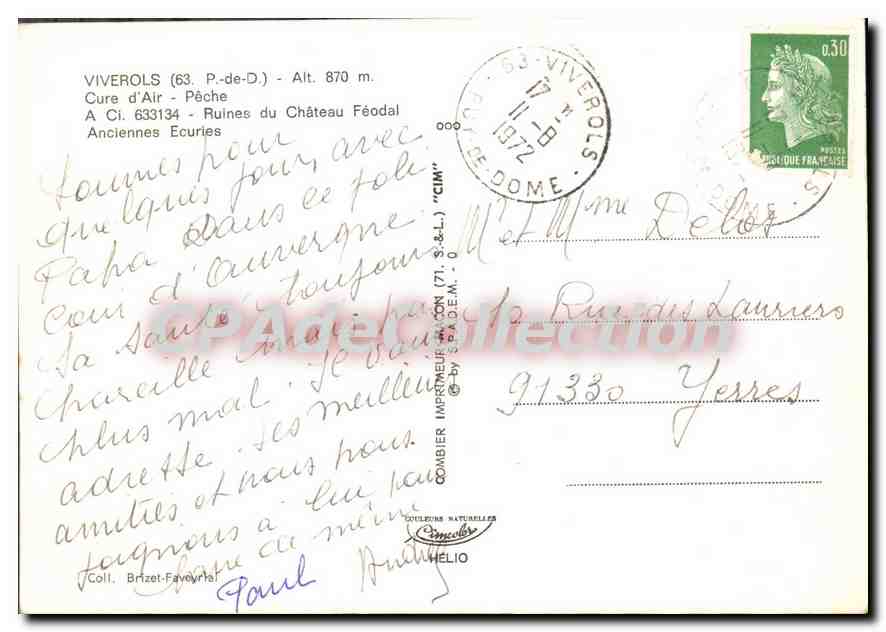 VIVEROLS (63. P.-de-D.) - Alt. 870 m.
Cure d'Air - Pêche
A Ci. 633134 - Ruines du Château Féodal
Anciennes Ecuries
Sommes pour
quelques jours avec
Papa dans ce joli
coin d'Auvergne.
Sa santé toujours
mais pas
plus mal. Je vous
adresse ses meilleures
amitiés et nous nous
joignons à lui pour
faire de même
Paul
Coll. Brizet-Faveyrial
COMBIER IMPRIMEUR MACON (71. S.-&-L.) "CIM"
© by S.P.A.D.E.M. - 0
COULEURS NATURELLES
Cimcolor
HELIO
63-VIVEROLS
17 H
11-8
1972
PUY-DE-DOME
0,30
POSTES
REPUBLIQUE FRANÇAISE
Mr et Mme Delos
Rue des Lauriers
91330 Yerres
CPAdeCollection